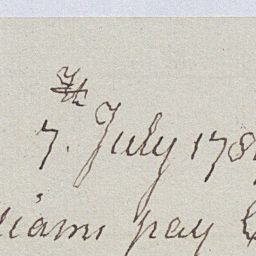 7th
7. July 178
liams pay